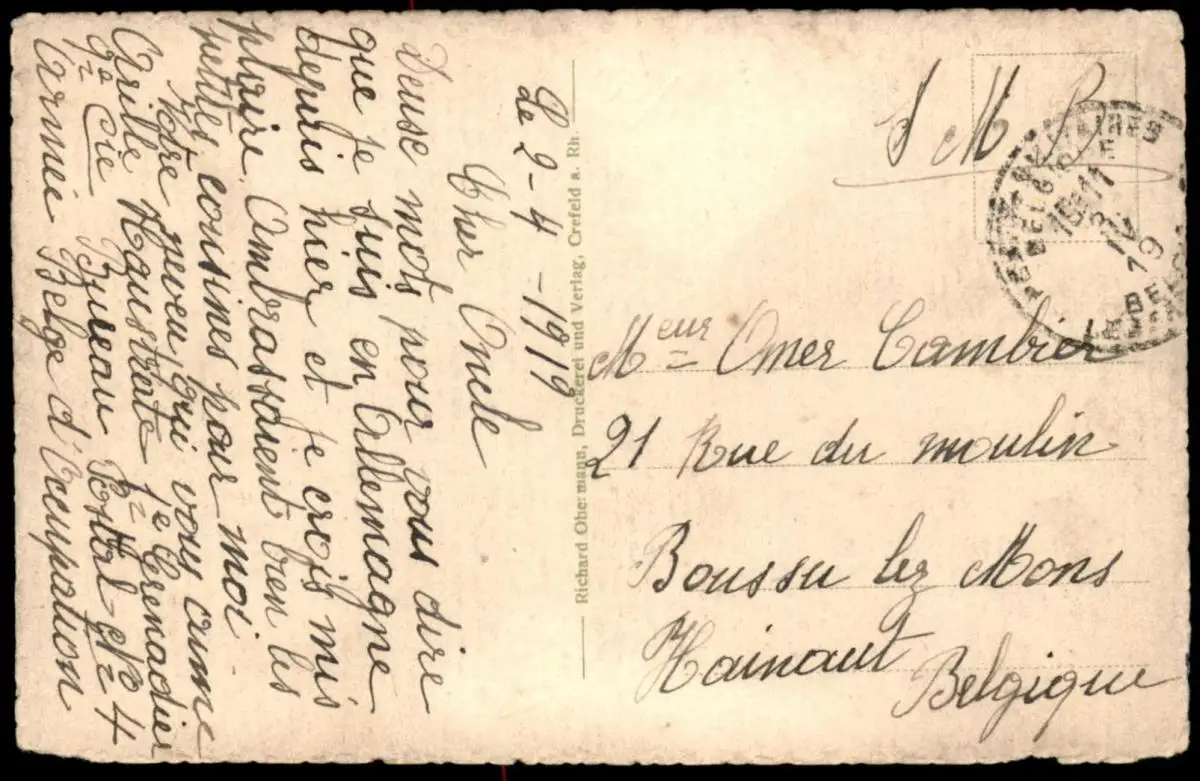 Le 2-4-1919
Cher Oncle
Deuse mots pour vous dire
que je suis en Allemagne
depuis hier et je crois mis
plaire Ambrassaient bien les
petites cousines pour moi
Votre neveu qui vous aime
Arille 1e Grenadier
9e Cie Bureau Postal N° 4
Armée Belge d'Occupation
Richard Obermann, Druckerei und Verlag, Crefeld a. Rh.
S M
MILITAIRES
16-11
19
Meur Omer Cambier
21 Rue du moulin
Boussu lez Mons
Hainaut
Belgique